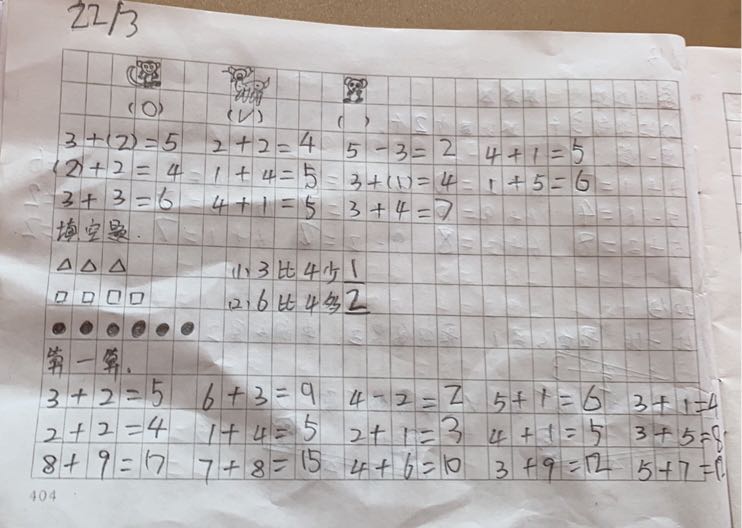 22/3
(○) (✓) ( )
3+(2)=5 2+2=4 5-3=2 4+1=5
(2)+2=4 1+4=5 3+(1)=4 1+5=6
3+3=6 4+1=5 3+4=7
填空题.
(1)3比4少1
(2)6比4多2
算一算.
3+2=5 6+3=9 4-2=2 5+1=6 3+1=4
2+2=4 1+4=5 2+1=3 4+1=5 3+5=8
8+9=17 7+8=15 4+6=10 3+9=12 5+7=
404